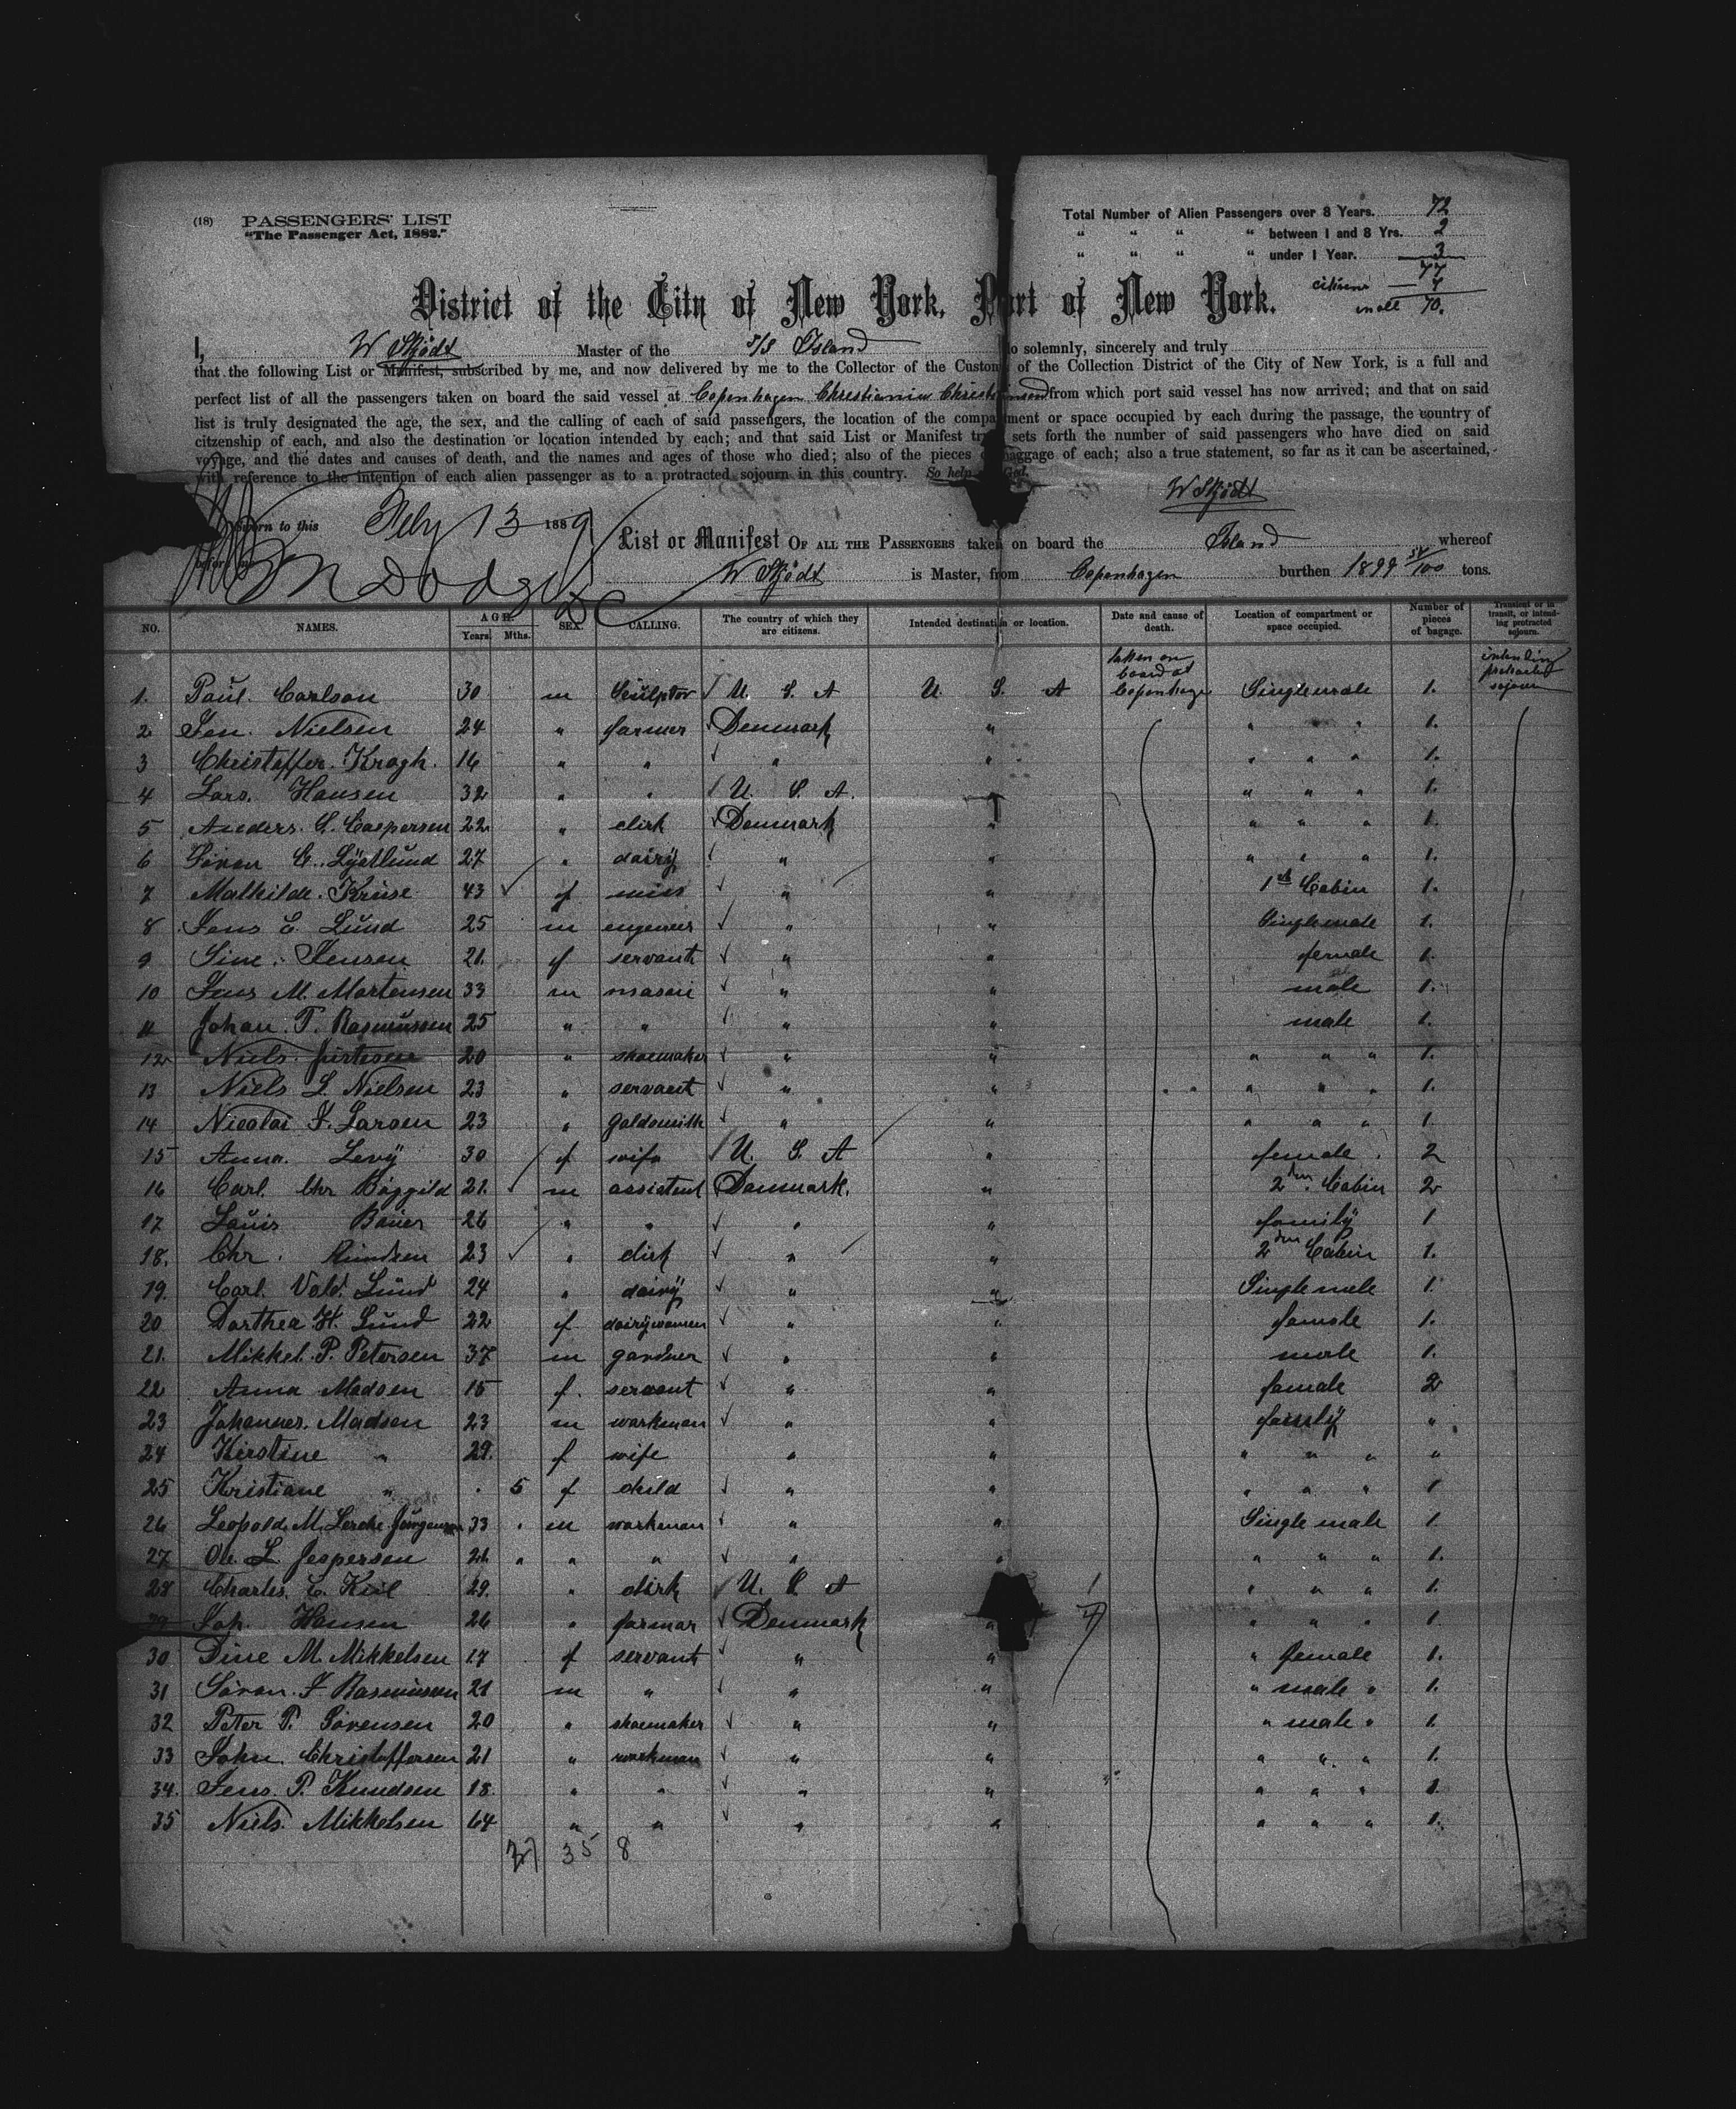 (18) PASSENGERS' LIST
"The Passenger Act, 1882."
Total Number of Alien Passengers over 8 Years. 72
" " " " between 1 and 8 Yrs. 2
" " " " under 1 Year. 3
77
citizens 7
in all 70.
District of the City of New York, Port of New York.
I, W Skjödt Master of the S/S Island do solemnly, sincerely and truly
that the following List or Manifest, subscribed by me, and now delivered by me to the Collector of the Customs of the Collection District of the City of New York, is a full and
perfect list of all the passengers taken on board the said vessel at Copenhagen Christiania Christiansand from which port said vessel has now arrived; and that on said
list is truly designated the age, the sex, and the calling of each of said passengers, the location of the compartment or space occupied by each during the passage, the country of
citzenship of each, and also the destination or location intended by each; and that said List or Manifest sets forth the number of said passengers who have died on said
voyage, and the dates and causes of death, and the names and ages of those who died; also of the pieces of baggage of each; also a true statement, so far as it can be ascertained,
with reference to the intention of each alien passenger as to a protracted sojourn in this country. So help God.
W Skjödt
Sworn to this Feby 13 1889
before me
M Dodge
D C
List or Manifest OF ALL THE PASSENGERS taken on board the Island whereof
W Skjödt is Master, from Copenhagen burthen 1899 /100 tons.
NO. NAMES. AGE. Years. Mths. SEX. CALLING. The country of which they are citizens. Intended destination or location. Date and cause of death. Location of compartment or space occupied. Number of pieces of bagage. Transient or in transit, or intending protracted sojourn.
1. Paul. Carlson 30 m Sculptor U. S. A U. S. A taken on board at Copenhagen Single male 1. intending protracted sojourn
2. Jen. Nielsen 24 " farmer Denmark " " " 1.
3 Christoffer. Krogh. 16 " " " " " " " 1.
4 Lars. Hansen 32 " " U. S. A. " " " " 1.
5 Anders. S. Caspersen 22 " clirk Denmark " " " " 1.
6 Sören C. Lystlund 27 " dairy " " " " " 1.
7 Mathilde. Kruse 43 f miss " " 1st Cabin 1.
8 Jens C. Lund 25 m engeneer " " Single male 1.
9 Sine. Jensen 21. f servant " " female 1.
10 Jens M. Mortensen 33 m mason " " male 1.
11 Johan. P. Rasmussen 25 " " " " male 1.
12 Niels. 20 " shoemaker " " " " " 1.
13 Niels L. Nielsen 23 " servant " " " " " 1.
14 Nicolai J. Larsen 23 " goldsmith " " " " " 1.
15 Anna. Levy 30 f wife U. S. A " female. 2
16 Carl. Chr Böggild 21. m assistent Denmark. " 2den Cabin 2
17 Lauis Bauer 26 " " " " family 1
18. Chr. 23 " clirk " " 2den Cabin 1.
19. Carl. Vald. Lund 24 " dairy " " Single male 1.
20 Dorthea H. Lund 22 f dairywomen " " female 1.
21. Mikkel. P. Petersen 37 m gardner " " male 1.
22 Anna Madsen 15 f. servant " " female 2
23 Johannes. Madsen 23 m workman " " family "
24 Kirstine " 29. f wife " " " " " "
25 Kristiane " . 5 f child " " " " " 1
26 Leopold. M. Lerche Jörgensen 33 . m workman " " Single male 1.
27 Ole L. Jespersen 21. " " " " " " " " 1.
28 Charles. C. Kiel 29. " clirk U. S. A " " " 1.
29 Sop. Hansen 26 " farmer Denmark " " " " 1
30 Dine M. Mikkelsen 17 f servant " " " female 1.
31 Sören. J Rasmussen 21 m " " " " male " 1.
32 Peter P. Sörensen 20 " shoemaker " " " male " 1.
33 John Christoffersen 21 " workman " " " " " 1.
34. Jens P. Knudsen 18. " " " " " " " 1.
35 Niels. Mikkelsen 64 " " " " " " " 1.
27 35 8